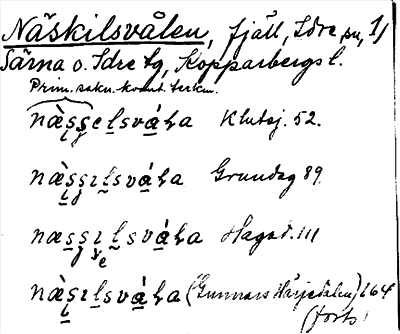 Näskilsvålen, fjäll, Idre sn, 1)
Särna o. Idre tg, Kopparbergs l.
Prim. sakn. komb. tecken.
næ̀sselsvála Klutsj. 52.
næ̀ssɪlsvála Grundag 89.
næssɪlsvála Hagad. 111
næ̀sɪlsvála (Gunnars Härjedalen) 264
(forts.